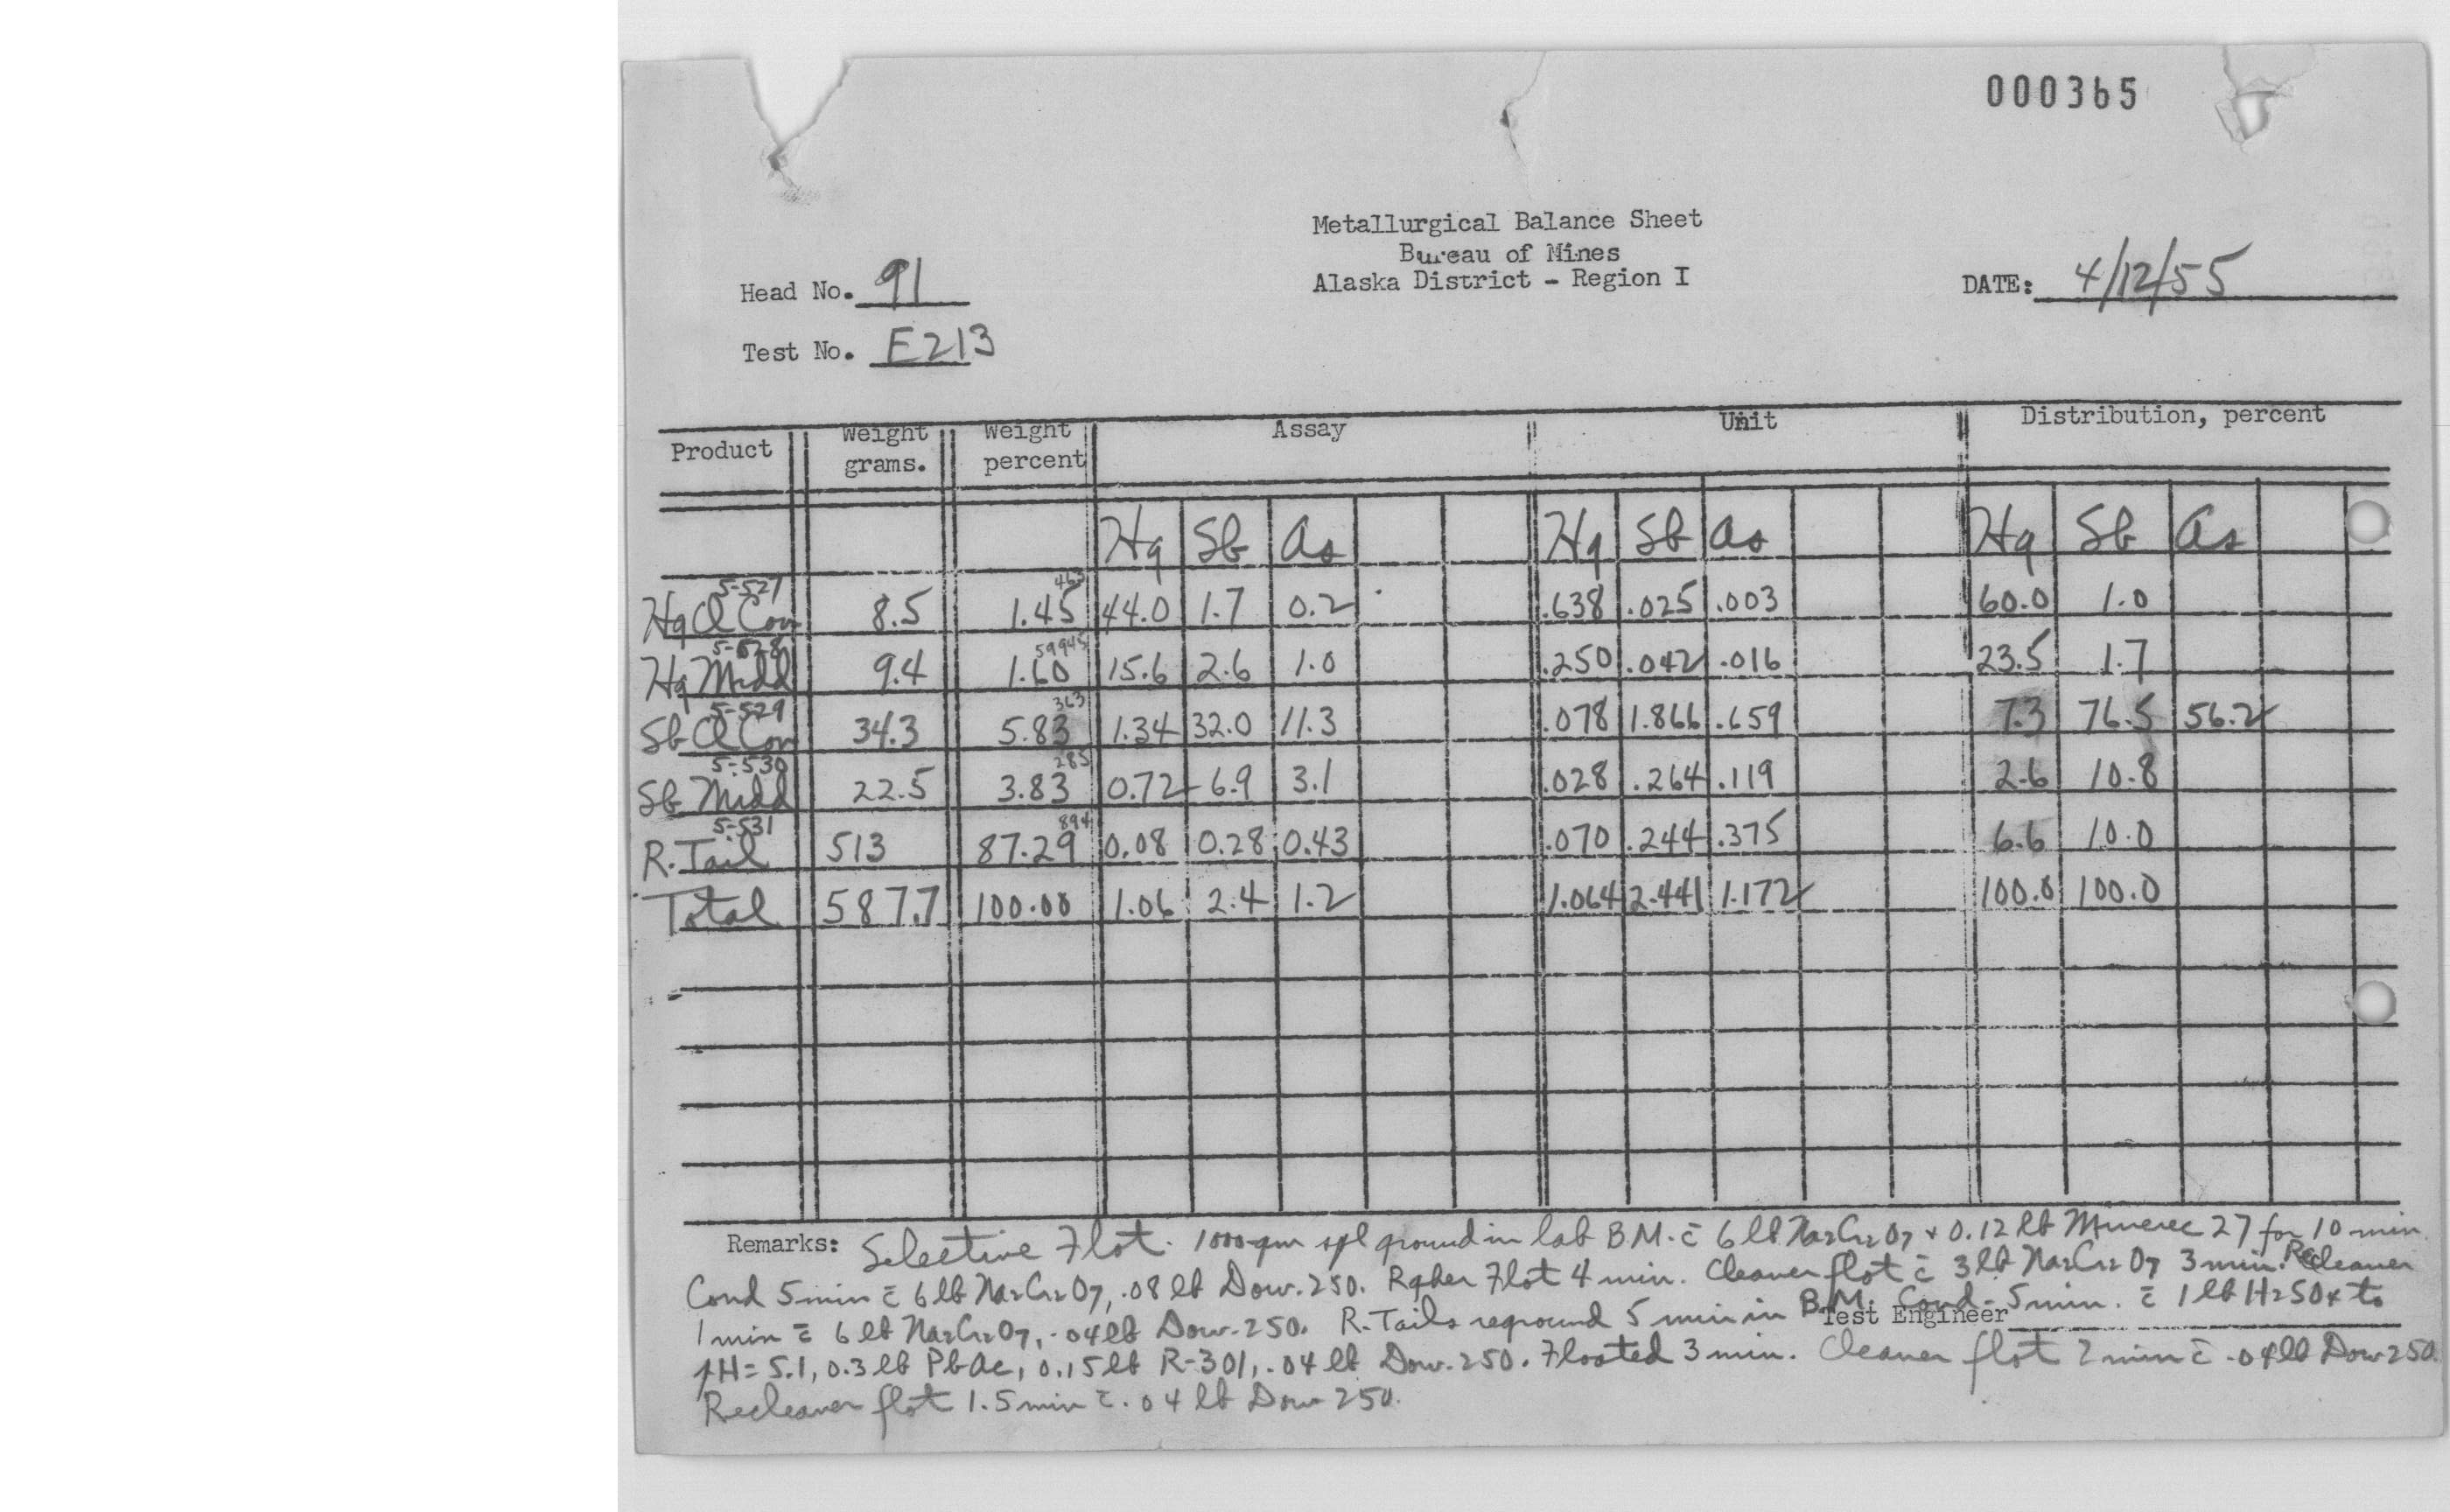 000365
Metallurgical Balance Sheet
Bureau of Mines
Alaska District - Region I
Head No. 91
DATE: 4/12/55
Test No. E213
Product Weight grams. Weight percent Assay Unit Distribution, percent
Hg Sb As Hg Sb As Hg Sb As
5-527 463
Hg Cl Con 8.5 1.45 44.0 1.7 0.2 .638 .025 .003 60.0 1.0
5-528 59945
Hg Midd 9.4 1.60 15.6 2.6 1.0 .250 .042 .016 23.5 1.7
5-529 363
Sb Cl Con 34.3 5.83 1.34 32.0 11.3 .078 1.866 .659 7.3 76.5 56.2
5-530 285
Sb Midd 22.5 3.83 0.72 6.9 3.1 .028 .264 .119 2.6 10.8
5-531 894
R. Tail 513 87.29 0.08 0.28 0.43 .070 .244 .375 6.6 10.0
Total 587.7 100.00 1.06 2.4 1.2 1.064 2.441 1.172 100.0 100.0
Remarks: Selective Flot. 1000-gm spl ground in lab B.M. c̄ 6 lb Na2Cr2O7 + 0.12 lb Minerec 27 for 10 min
Cond 5 min c̄ 6 lb Na2Cr2O7, .08 lb Dow. 250. Rgher Flot 4 min. Cleaner flot c̄ 3 lb Na2Cr2O7 3 min. Recleaner
1 min c̄ 6 lb Na2Cr2O7, .04 lb Dow. 250. R. Tails reground 5 min in B.M. Cond. 5 min. c̄ 1 lb H2SO4 to
Test Engineer
pH = 5.1, 0.3 lb PbAc, 0.15 lb R-301, .04 lb Dow. 250. Floated 3 min. Cleaner flot 2 min c̄ .04 lb Dow 250.
Recleaner flot 1.5 min c̄ .04 lb Dow 250.